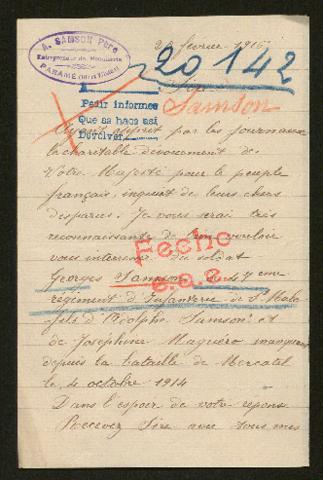 A. SAMSON Père
Entrepreneur de Menuiserie
PARAMÉ (Ille-et-Vilaine)
février 1916
20142
Sire
Samson
Pedir informes
Que se hace así
Devolver
Ayant appris par les journaux
la charitable dévouement de
Votre Majesté pour le peuple
français, inquiet de leurs chers
disparus. Je vous serai très
reconnaissante de bien vouloir
vous interesser du soldat
Fecho
Georges Samson
e.o.e.
regiment d'Infanterie de St Malo
fils d'Adolphe Samson et
de Josephine Maguero manquant
depuis la bataille de Mercatel
le 4 octobre 1914
Dans l'espoir de votre repons
Recevez Sire avec tous mes